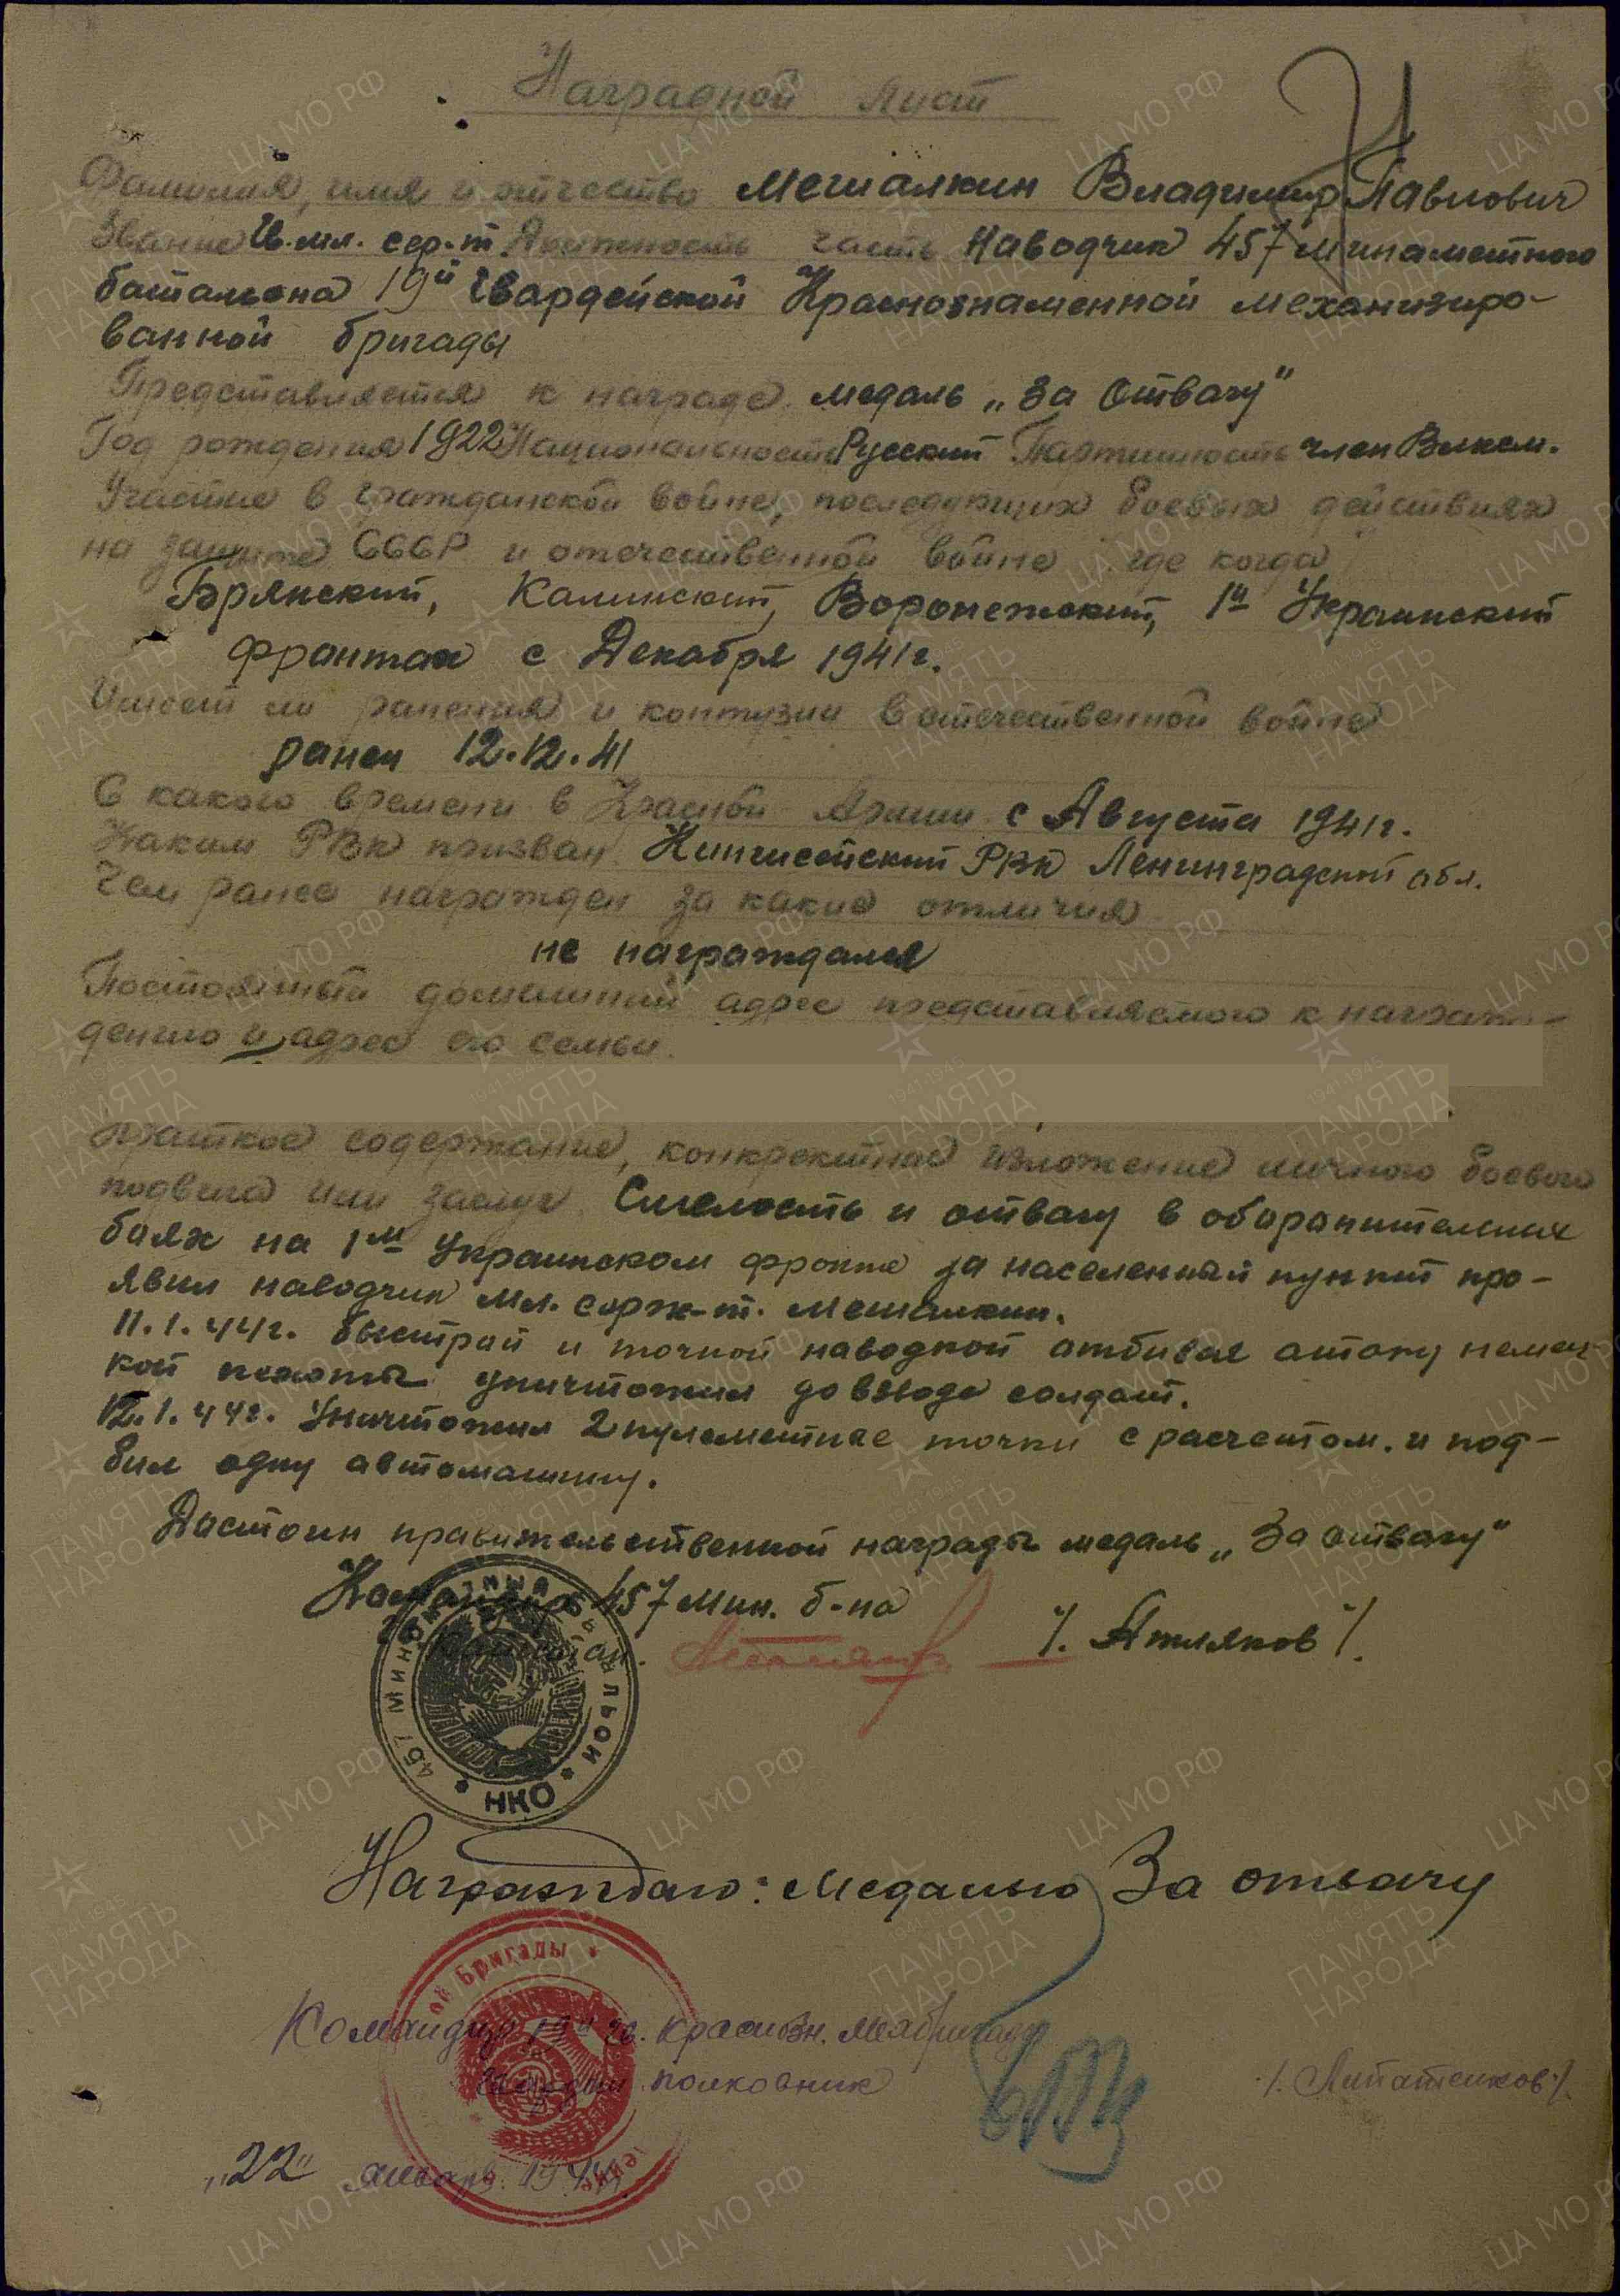 Наградной лист
Фамилия, имя и отчество Мешалкин Владимир Павлович
Звание Гв. мл. сер-т Должность часть Наводчик 457 минаметного
батальона 19й Гвардейской Краснознаменной механизиро-
ванной бригады
Представляется к награде медаль „За Отвагу"
Год рождения 1922 Национальность Русский Партийность член Влксм.
Участие в гражданской войне, последующих боевых действиях
на защите СССР и отечественной войне где когда
Брянский, Калинский, Воронежский, 1й Украинский
фронтах с Декабря 1941г.
Имеет ли ранения и контузии в отечественной войне
ранен 12.12.41
С какого времени в Красной Армии с Августа 1941г.
Каким РВК призван Кингисепский РВК Ленинградской обл.
Чем ранее награжден за какие отличия
не награждался
Постоянный домашний адрес представляемого к награж-
дению и адрес его семьи.
Краткое содержание, конкректное изложение личного боевого
подвига или заслуг Смелость и отвагу в оборонительных
боях на 1м Украинском фронте за населенный пункт про-
явил наводчик мл. серж-т. Мешалкин.
11.1.44г. быстрой и точной наводкой отбивая атаку немец-
кой пехоты уничтожил до взвода солдат.
12.1.44г. Уничтожил 2 пулеметные точки с расчетом. и под-
бил одну автомашину.
Достоин правительственной награды медаль „За отвагу"
Командир 457 мин. б-на
/. Атляков /.
457 МИНОМЕТНЫЙ БАТАЛЬОН * НКО *
Награждаю: Медалью За отвагу
ой Бригады
Командир 19й гв. краснозн. мехбригады
гвардии полковник /. Липатенков /.
„22" январь 1944
ЦА МО РФ
1941-1945
ПАМЯТЬ
НАРОДА